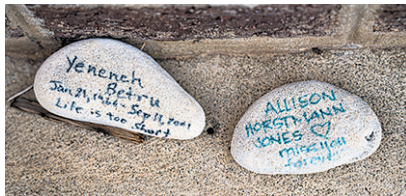 Yeneneh
Betru
Jan 21, 1966 - Sep 11, 2001
Life is too short
ALLISON
HORSTMANN
JONES ♡
miss you